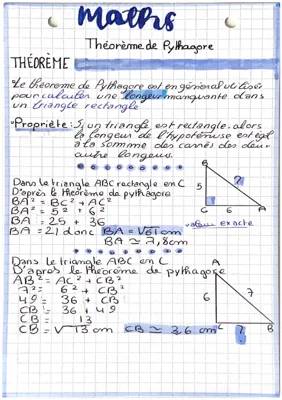 Maths
Théorème de Pythagore
THÉORÈME
Le théorème de Pythagore est en général utilisés
pour calculer une longeur manquante dans
un triangle rectangle
Propriété: Si un triangle est rectangle. alors
la longeur de l'hypoténuse est égal
à la somme des carrés des deux
autre longeurs.
Dans le triangle ABC rectangle en C
D'après le théorème de pythagore
BA² = BC² + AC²
BA² = 5² + 6²
BA = 25 + 36
BA = 21 donc BA = √61 cm
valeur exacte
BA ≃ 7,8cm
B
5
?
C 6 A
Dans le triangle ABC en C
D'après le théorème de pythagore
AB² = AC² + CB²
7² = 6² + CB²
49 = 36 + CB
CB = 36 + 49
CB = 13
CB = √13 cm CB ≃ 3,6 cm
A
6
7
C ? B